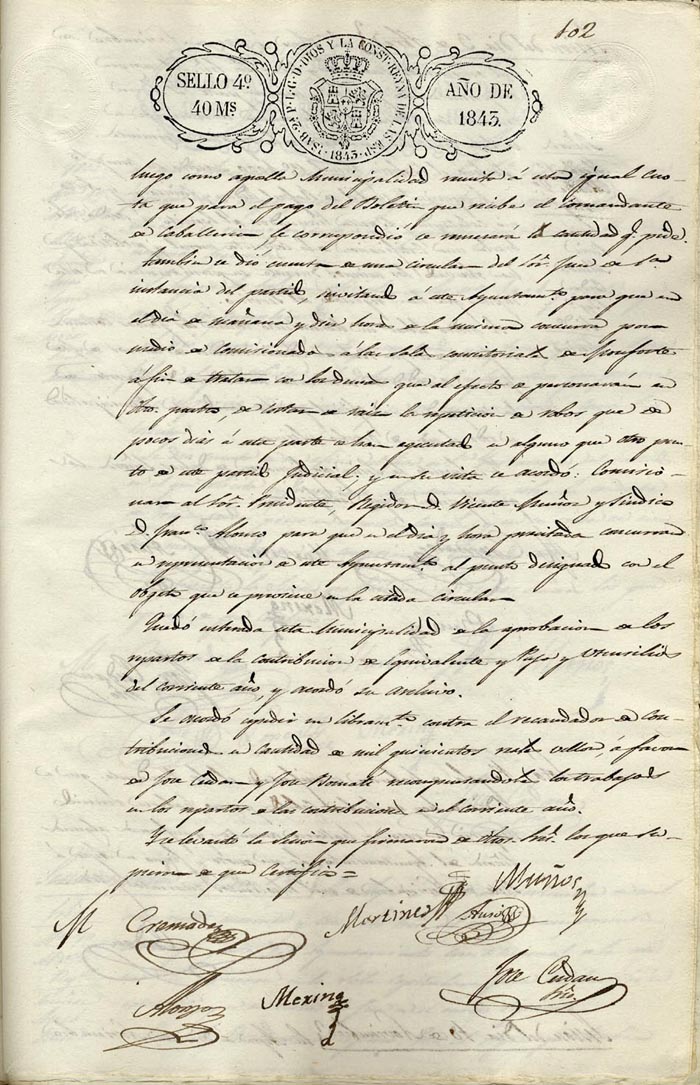 602
SELLO 4º
40 Ms
ISAB. 2ª P. L. G. D. DIOS Y LA CONST. REYNA DE LAS ESP. 1843.
AÑO DE
1843.
luego como aquella Municipalidad remita á esta igual cuo-
ta que para el pago del Boletin que recibe el Comandante
de Caballeria, le correspondio se remesará la cantidad q.e pide.
Tambien se dió cuenta de una circular del Sor. Juez de 1ª
instancia del partido, invitando á este Ayuntamto. para que en
el dia de mañana y diez horas de la misma concurra por
medio de Comisionados á las salas consistoriales de Monforte
á fin de tratar con los demas que al efecto se personarán en
dho. punto, de cortar de raiz la repeticion de robos que de
pocos dias á esta parte se han egecutado en alguno que otro pun-
to de este partido Judicial; y en su vista se acordó: Comisio-
nar al Sor. Presidente, Regidor D. Vicente Muñoz y Sindico
D. Franco. Alonso para que en el dia y hora precitada concurran
en representacion de este Ayuntamto. al punto designado con el
objeto que se previene en la citada circular
Quedó enterada esta Municipalidad de la aprobacion de los
repartos de la contribucion de Equivalente y Paja y Utensilios
del corriente año, y acordó su archivo.
Se acordó espedir un libramto. contra el recaudador de con-
tribuciones en cantidad de mil quinientos reales vellon, á favor
de Jose Cerdan y Jose Bonmatí recompensandoles los trabajos
en los repartos de las contribuciones en el corriente año.
Y se levantó la sesion que firmaron de dhos. Sres. los que su-
pieron de que Certifico=
Muñoz
Cremades
Martinez
Alonso
Mexina
Jose Cerdan
Srio.